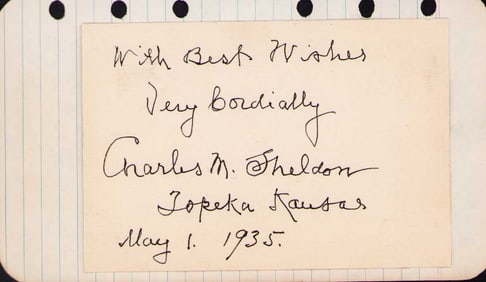 With Best Wishes
Very Cordially
Charles M. Sheldon
Topeka Kansas
May 1. 1935.